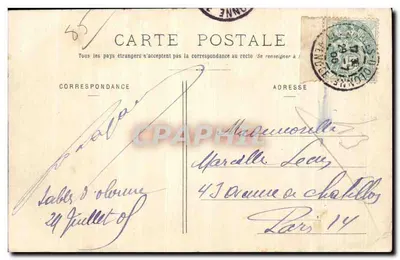 85
CARTE POSTALE
Tous les pays étrangers n'acceptent pas la correspondance au recto (se renseigner à
CORRESPONDANCE
ADRESSE
Mademoiselle
Marcelle
4 Avenue de Chatillon
Paris 14
Sables d'olonne
24 Juillet 05